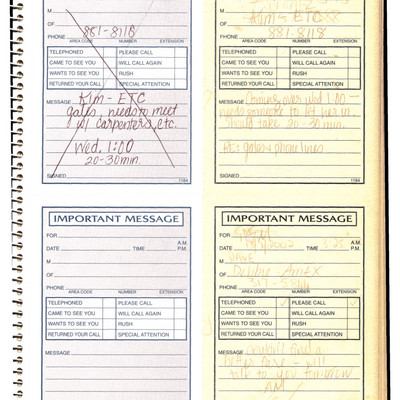 M
OF
PHONE 881-8118
AREA CODE NUMBER EXTENSION
TELEPHONED PLEASE CALL
CAME TO SEE YOU WILL CALL AGAIN
WANTS TO SEE YOU RUSH
RETURNED YOUR CALL SPECIAL ATTENTION
MESSAGE Kim - ETC
gales, needs to meet
w/ carpenters, etc.
Wed. 1:00
20-30 min.
SIGNED
1184
M
OF Kim - ETC
PHONE 881-8118
AREA CODE NUMBER EXTENSION
TELEPHONED PLEASE CALL
CAME TO SEE YOU WILL CALL AGAIN
WANTS TO SEE YOU RUSH
RETURNED YOUR CALL SPECIAL ATTENTION
MESSAGE Coming over Wed 1:00 -
needs someone to let her in.
should take 20-30 min.
RE: gales phone lines
SIGNED
1184
IMPORTANT MESSAGE
FOR
DATE TIME A.M. P.M.
M
OF
PHONE
AREA CODE NUMBER EXTENSION
TELEPHONED PLEASE CALL
CAME TO SEE YOU WILL CALL AGAIN
WANTS TO SEE YOU RUSH
RETURNED YOUR CALL SPECIAL ATTENTION
MESSAGE
IMPORTANT MESSAGE
FOR
DATE TIME A.M. P.M.
M Dave
OF
PHONE
AREA CODE NUMBER EXTENSION
TELEPHONED PLEASE CALL
CAME TO SEE YOU WILL CALL AGAIN
WANTS TO SEE YOU RUSH
RETURNED YOUR CALL SPECIAL ATTENTION
MESSAGE
will
talk to you tomorrow